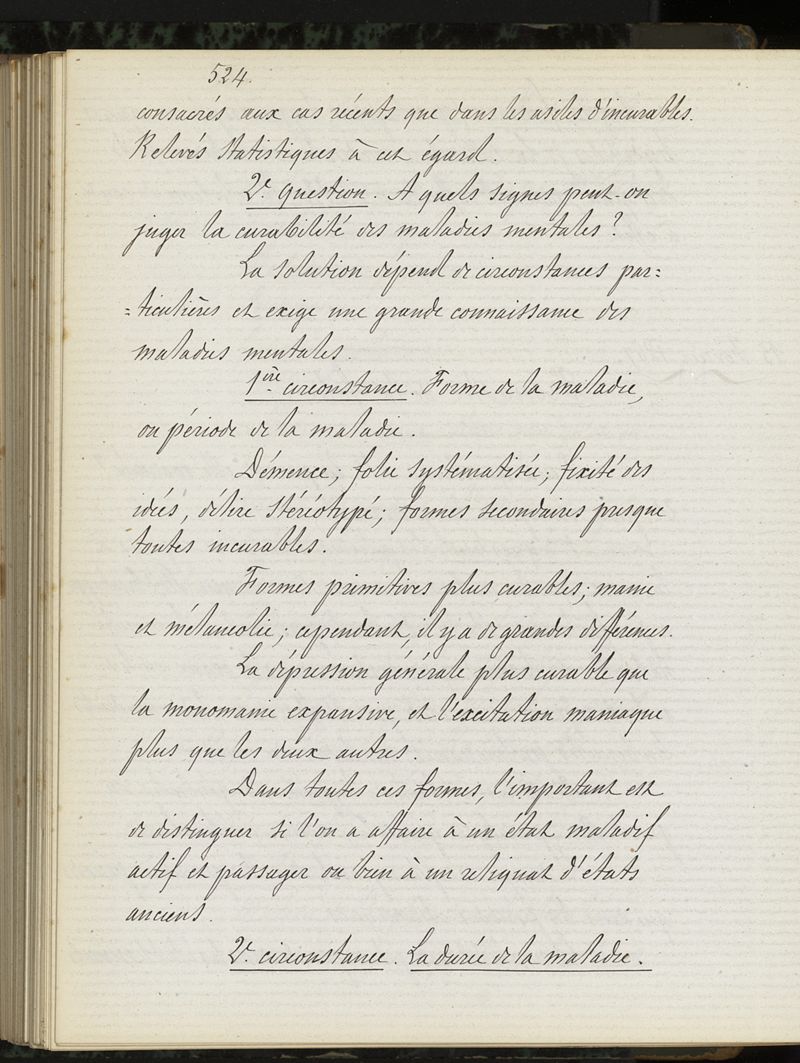 524.
consacrés aux cas récents que dans les asiles d'incurables.
Relevés statistiques à cet égard.
2e question. A quels signes peut-on
juger la curabilité des maladies mentales?
La solution dépend de circonstances par=
=ticulières et exige une grande connaissance des
maladies mentales.
1ère circonstance. Forme de la maladie,
ou période de la maladie.
Démence; folie systématisée; fixité des
idées, délire stéréotypé; formes secondaires presque
toutes incurables.
Formes primitives plus curables; manie
et mélancolie; cependant, il y a de grandes différences.
La dépression générale plus curable que
la monomanie expansive, et l'excitation maniaque
plus que les deux autres.
Dans toutes ces formes, l'important est
de distinguer si l'on a affaire à un état maladif
actif et passager ou bien à un reliquat d'états
anciens.
2e circonstance. La durée de la maladie.